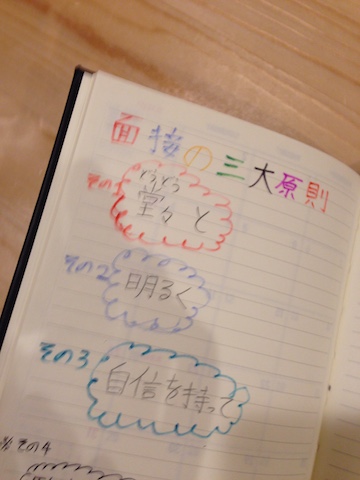 面接の三大原則
その1
どうどう
堂々と
その2
明るく
その3
自信を持って
その4